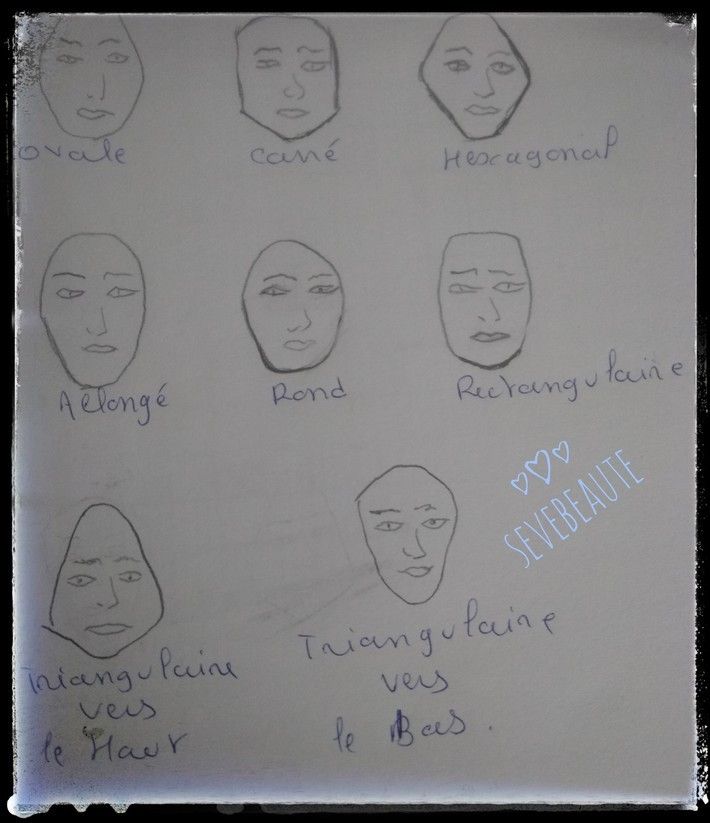 ovale
carré
Hexagonal
Allongé
Rond
Rectangulaire
SEVEBEAUTE
Triangulaire
vers
le Haut
Triangulaire
vers
le Bas.